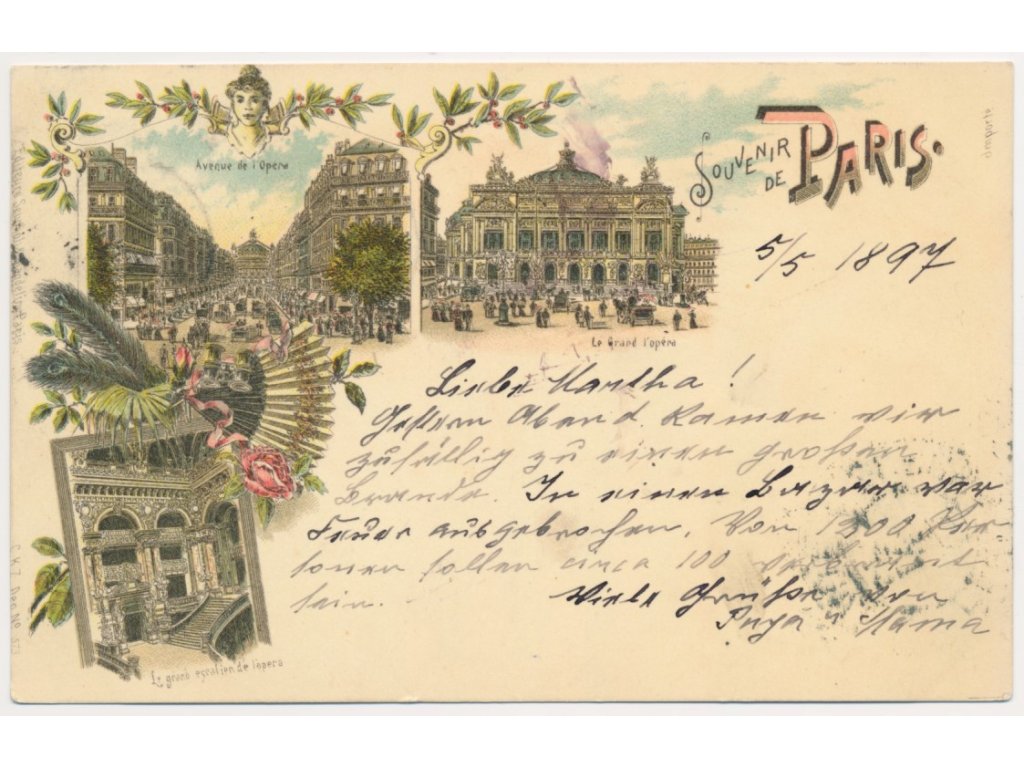 Avenue de l'Opera
SOUVENIR DE PARIS.
5/5 1897
Le Grand l'opéra
Liebe Martha!
Gestern Abend kamen wir
zufällig zu einen großen
Brande. In einen Bazar war
Feuer ausgebrochen. Von 1300 Per
sonen sollen circa 100 verbrannt
sein. Viele Grüße von
Papa u Mama
Le grand escalier de l'opera